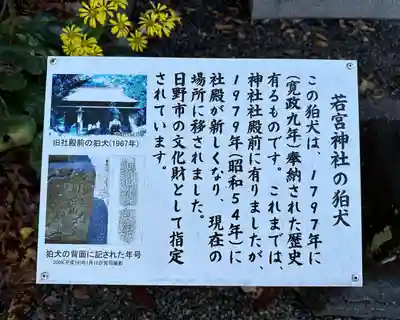 若宮神社の狛犬
この狛犬は、1797年に
(寛政九年)奉納された歴史
有るものです。これまでは、
神社社殿前に有りましたが、
1979年(昭和54年)に
社殿が新しくなり、現在の
場所に移されました。
日野市の文化財として指定
されています。
旧社殿前の狛犬(1967年)
狛犬の背面に記された年号